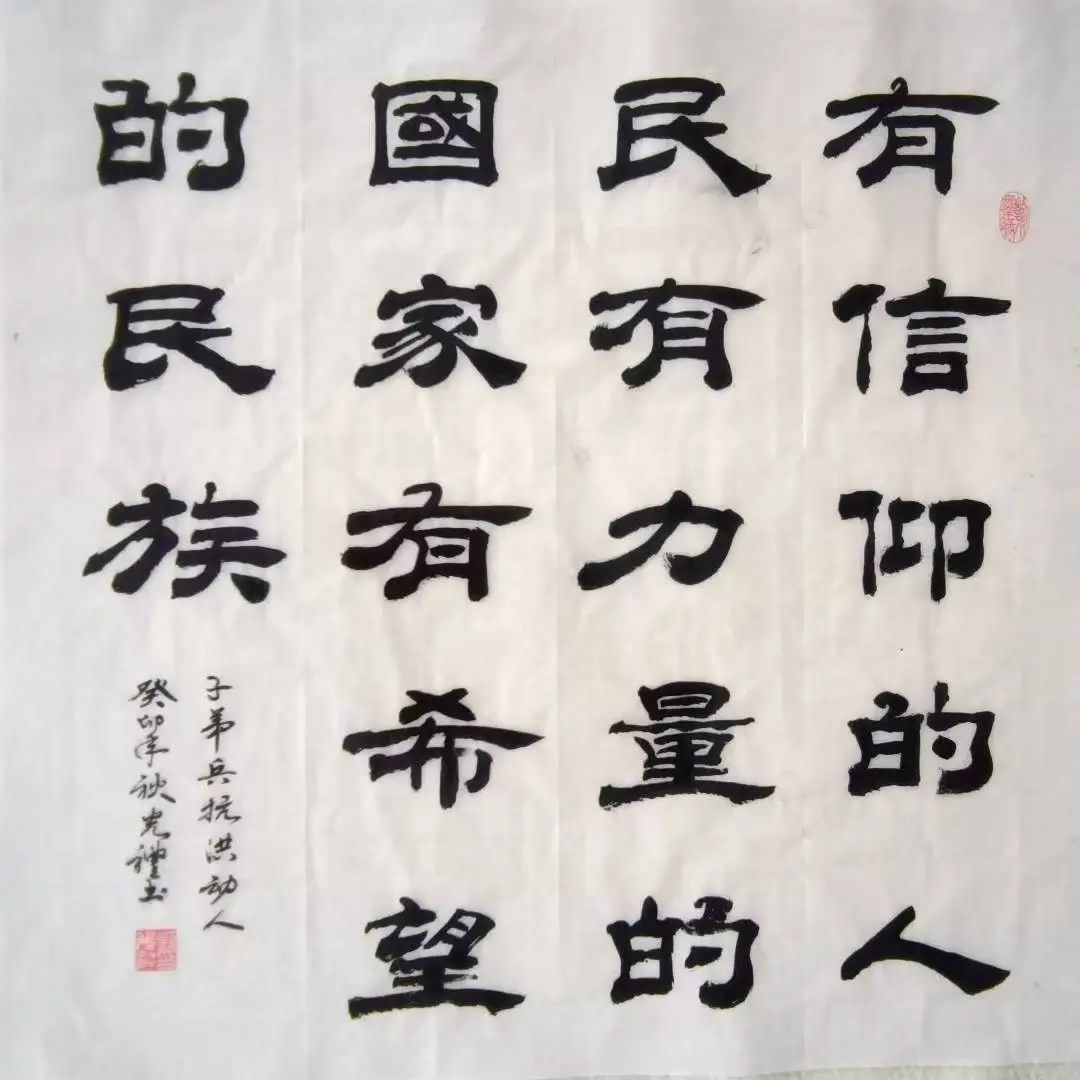 有信仰的人
民有力量的
國家有希望
的民族
子弟兵抗洪动人
癸卯年秋光禮书